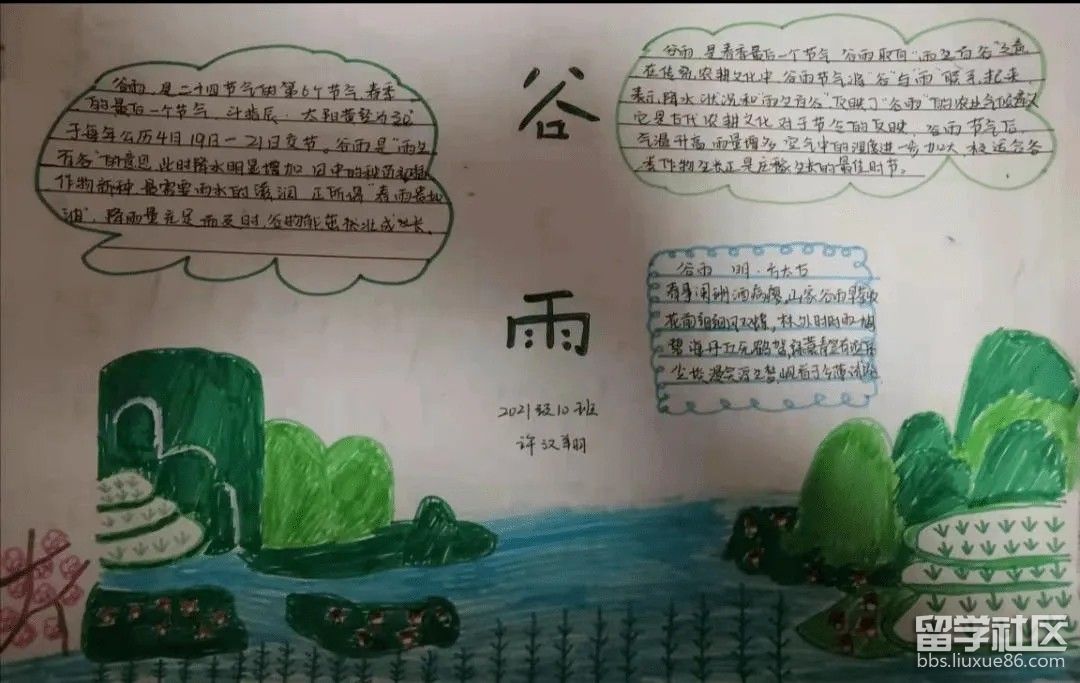 谷雨，是二十四节气的第6个节气，春季
的最后一个节气。斗指辰，太阳黄经为30°
于每年公历4月19日—21日交节。谷雨是“雨生
百谷”的意思，此时降水明显增加，田中的秧苗初插
作物新种，最需要雨水的滋润，正所谓“春雨贵如
油”。降雨量充足而及时，谷物能茁壮成长。
谷
雨
2021级10班
许汉翔
谷雨是春季最后一个节气，谷雨取自“雨生百谷”之意
在传统农耕文化中，谷雨节气将“谷”与“雨”联系起来
表示降水状况和“雨生百谷”反映了“谷雨”的农业气候意义
它是古代农耕文化对于节令的反映，谷雨节气后，
气温升高，雨量增多，空气中的湿度进一步加大，极适合谷
类作物生长，正是庄稼生长的最佳时节。
谷雨 明·方太古
春事阑珊酒病瘳，山家谷雨早茶收
花前细细风双蝶，林外时时雨一鸠
碧海丹丘无鹤驾，绿蓑青笠有渔
尘埃漫笑浮生梦，岘首于今薄试游
留学社区
bbs.liuxue86.com